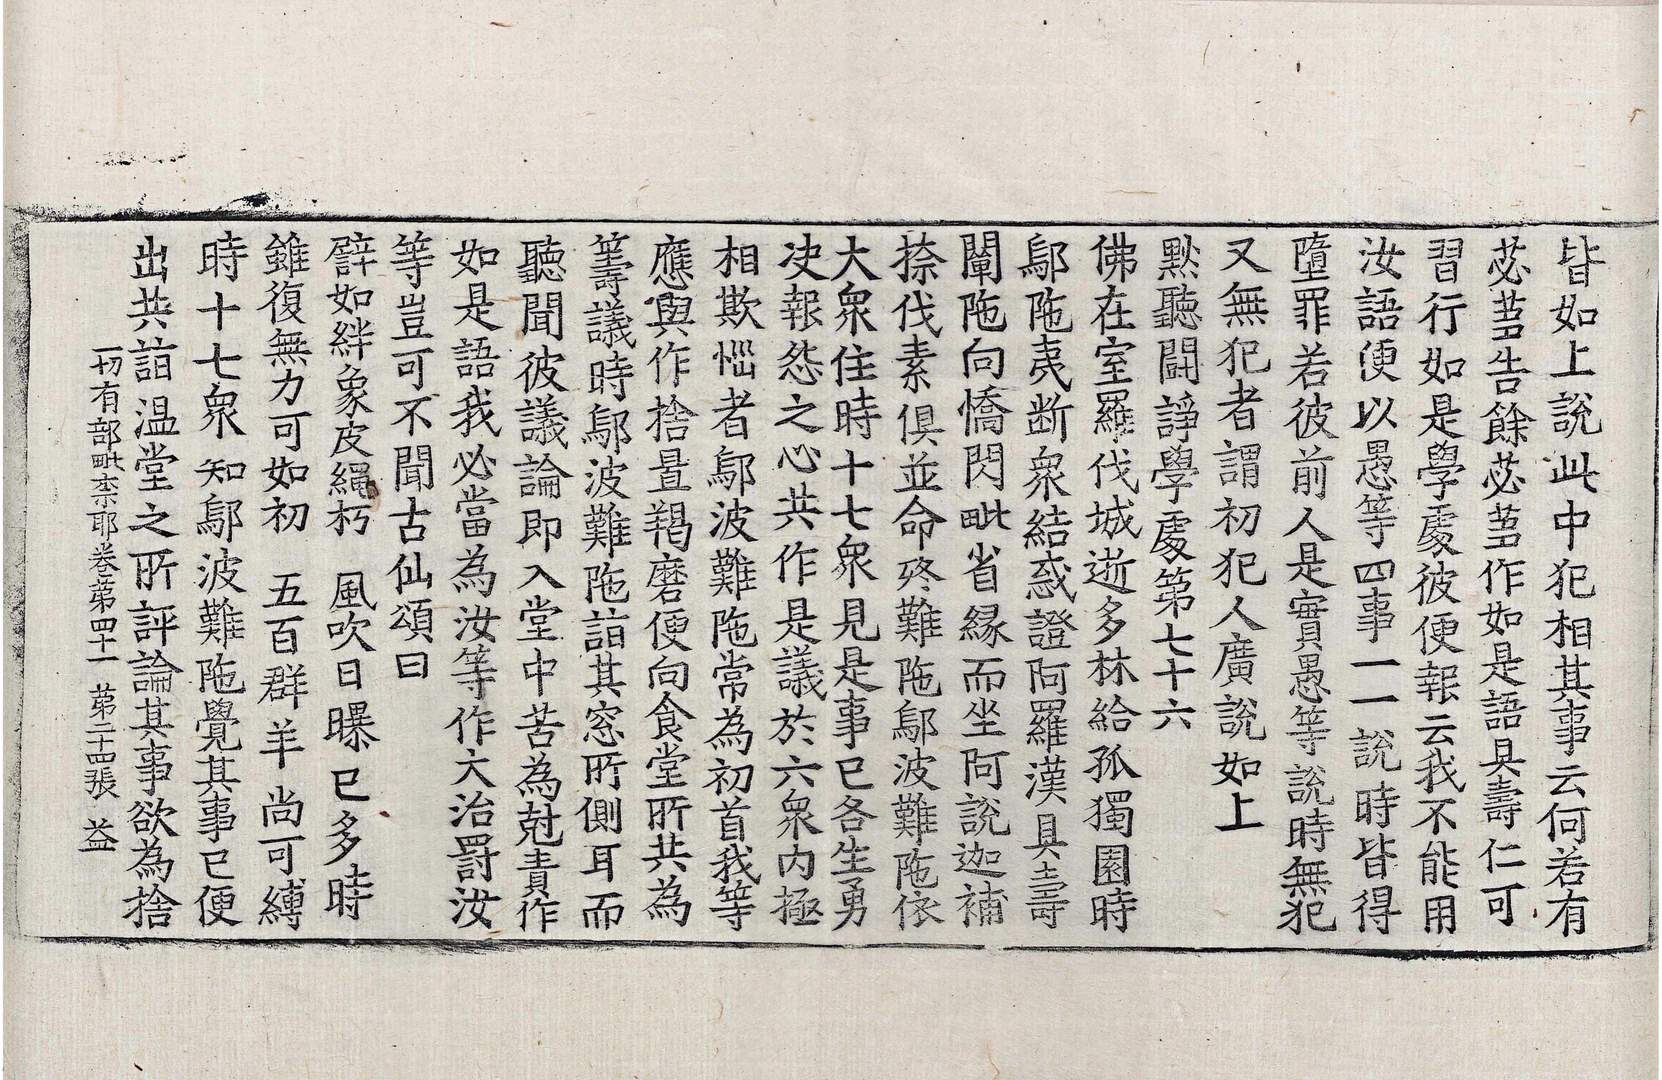 皆如上說此中犯相其事云何若有
苾蒭告餘苾蒭作如是語具壽仁可
習行如是學處彼便報云我不能用
汝語便以愚等四事一一說時皆得
墮罪若彼前人是實愚等說時無犯
又無犯者謂初犯人廣說如上
默聽鬪諍學處第七十六
佛在室羅伐城逝多林給孤獨園時
鄔陁夷斷衆結惑證阿羅漢具壽
闡陁向憍閃毗省緣而坐阿說迦補
捺伐素俱並命終難陁鄔波難陁依
大衆住時十七衆見是事已各生勇
決報怨之心共作是議於六衆內極
相欺惱者鄔波難陁常為初首我等
應與作捨置羯磨便向食堂所共為
籌議時鄔波難陁詣其窓所側耳而
聽聞彼議論即入堂中苦為尅責作
如是語我必當為汝等作大治罸汝
等豈可不聞古仙頌曰
譬如絆象皮繩朽　風吹日曝已多時
雖復無力可如初　五百群羊尚可縛
時十七衆知鄔波難陁覺其事已便
出共詣溫堂之所評論其事欲為捨
一切有部毗柰耶卷第四十一　第二十四張　益